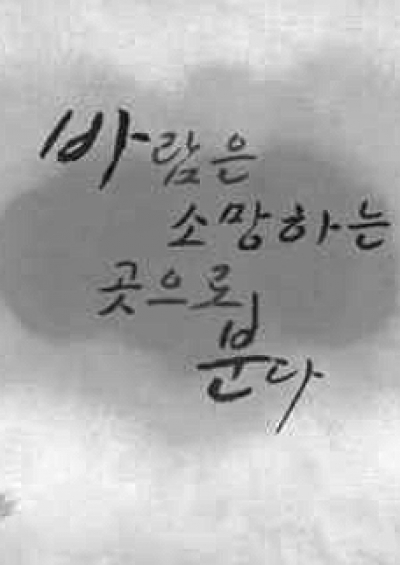 바람은
소망하는
곳으로
분다